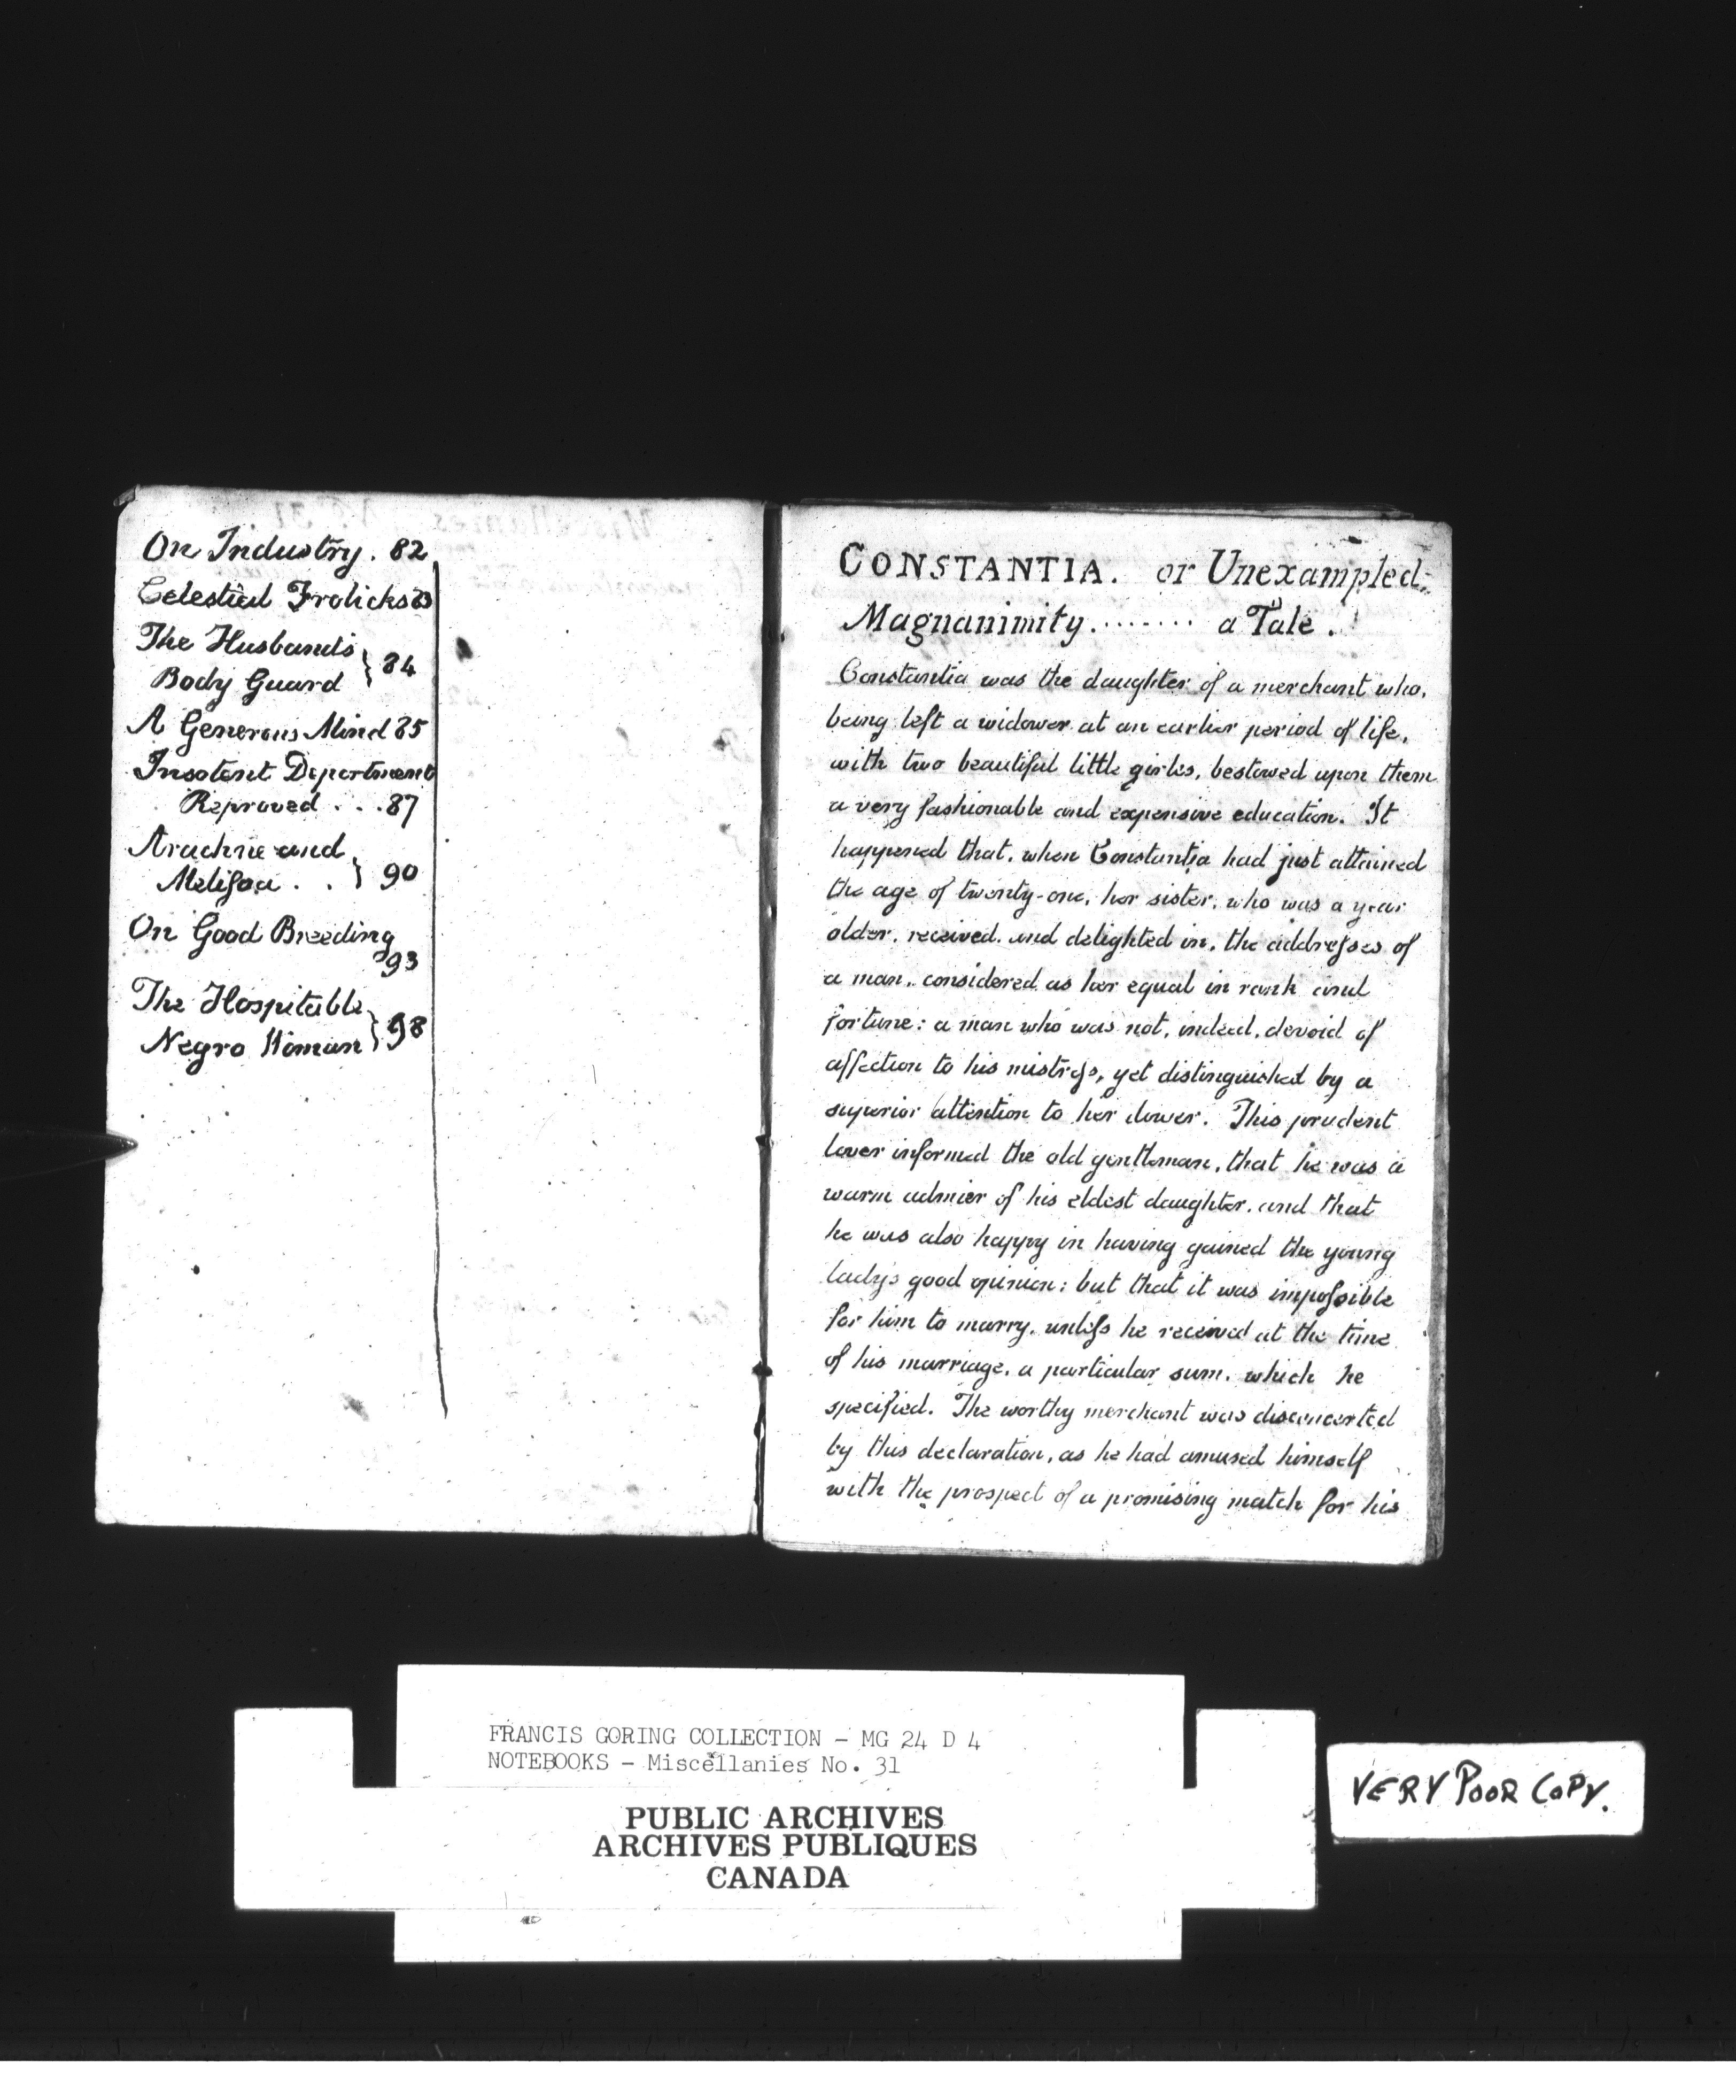 On Industry. 82
Celestial Frolicks 83
The Husbands
Body Guard } 84
A Generous Mind 85
Insolent Deportment
Reproved . . . 87
Arachne and
Melissa . . } 90
On Good Breeding
93
The Hospitable
Negro Woman } 98
CONSTANTIA. or Unexampled
Magnanimity. ....... a Tale.
Constantia was the daughter of a merchant who,
being left a widower at an earlier period of life,
with two beautiful little girles, bestowed upon them
a very fashionable and expensive education. It
happened that, when Constantia had just attained
the age of twenty-one, her sister, who was a year
older, received, and delighted in, the addresses of
a man, considered as her equal in rank and
fortune: a man who was not, indeed, devoid of
affection to his mistress, yet distinguished by a
superior attention to her dower. This prudent
lover informed the old gentleman, that he was a
warm admier of his eldest daughter, and that
he was also happy in having gained the young
lady's good opinion: but that it was impossible
for him to marry, unless he received at the time
of his marriage, a particular sum, which he
specified. The worthy merchant was disconcerted
by this declaration, as he had amused himself
with the prospect of a promising match for his
FRANCIS GORING COLLECTION - MG 24 D 4
NOTEBOOKS - Miscellanies No. 31
PUBLIC ARCHIVES
ARCHIVES PUBLIQUES
CANADA
VERY POOR COPY.